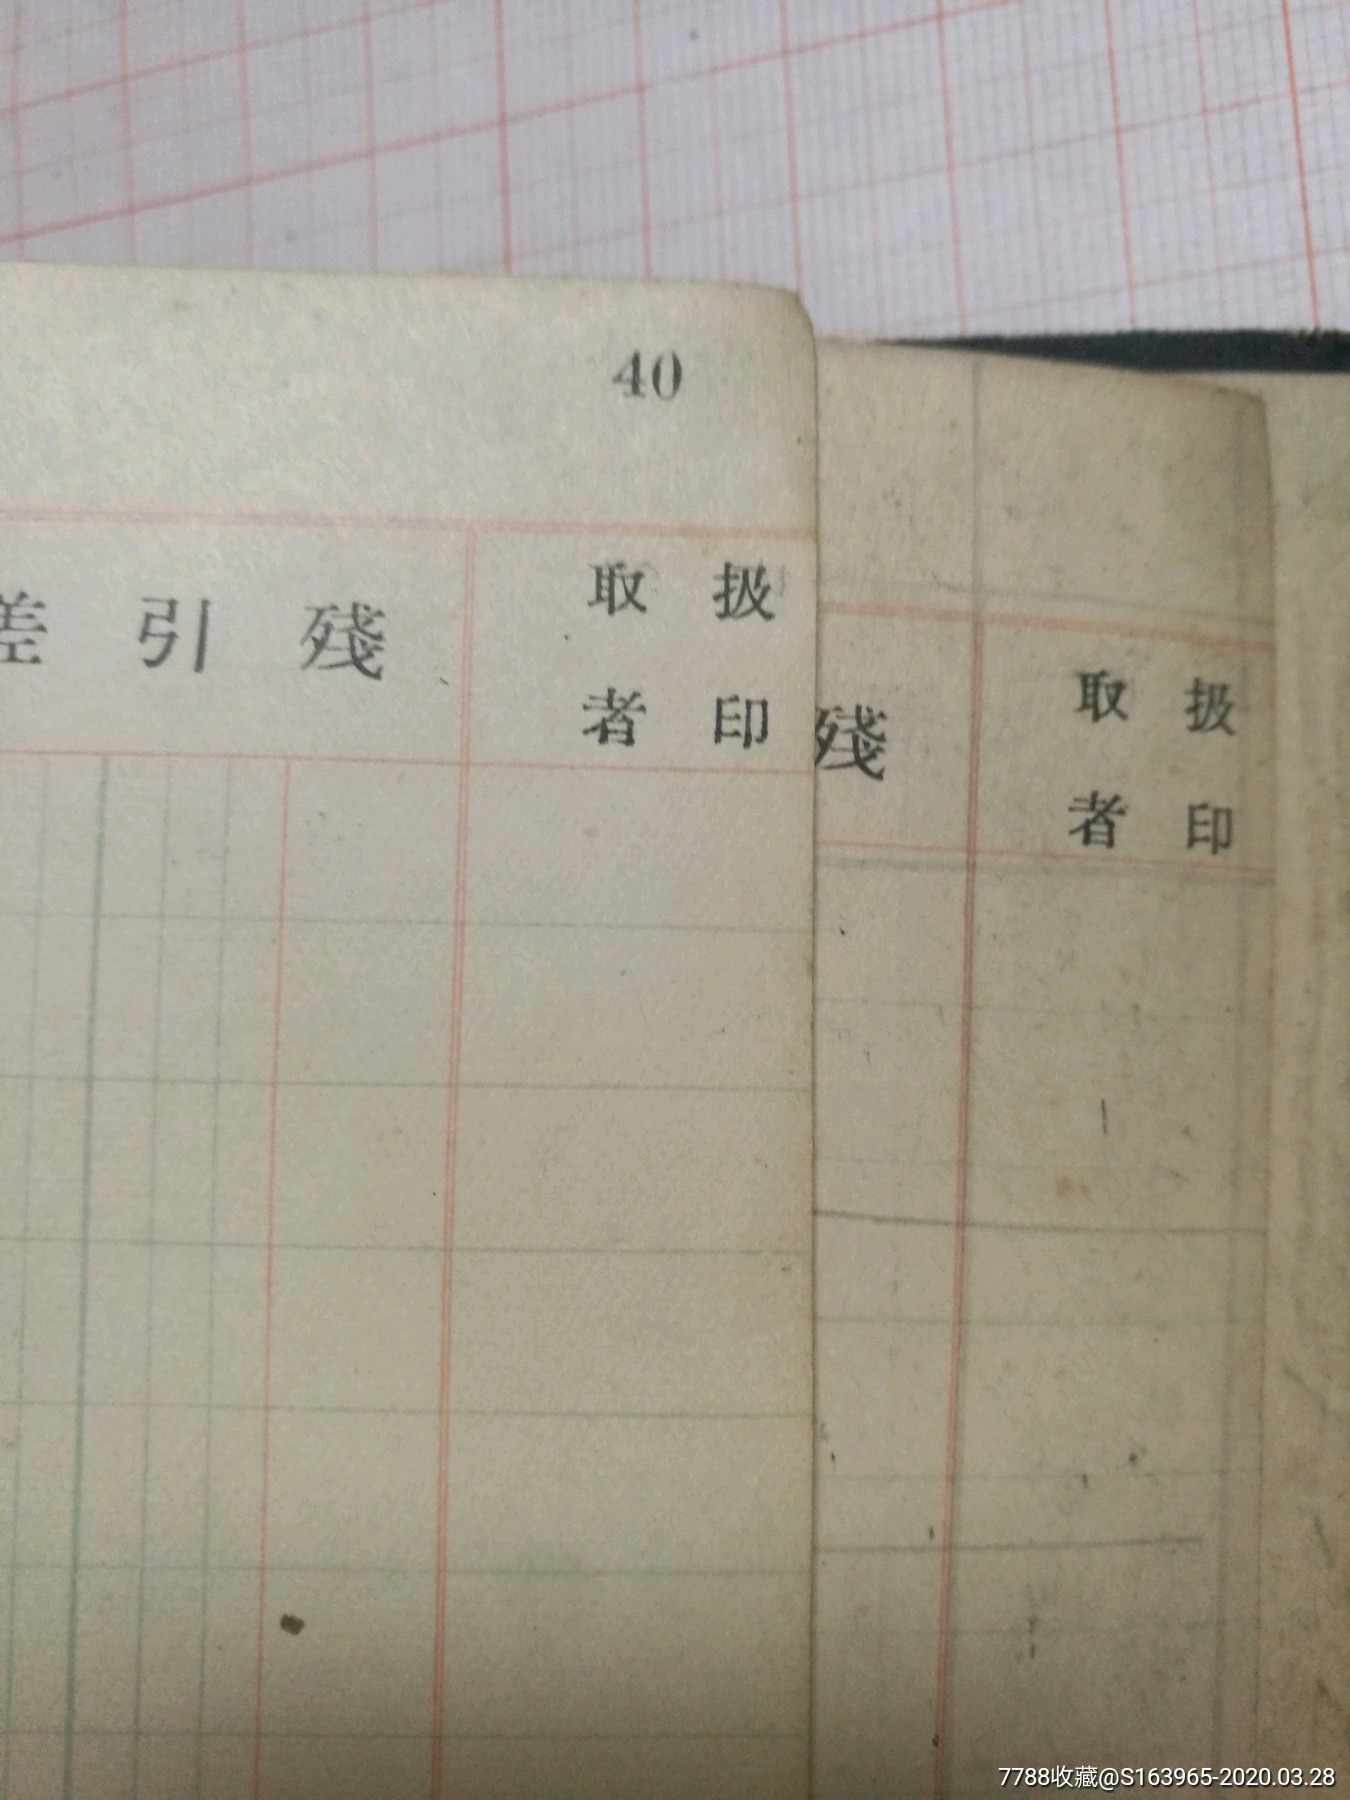 40
差引殘
取扱
者印
殘
取扱
者印
7788收藏@S163965-2020.03.28